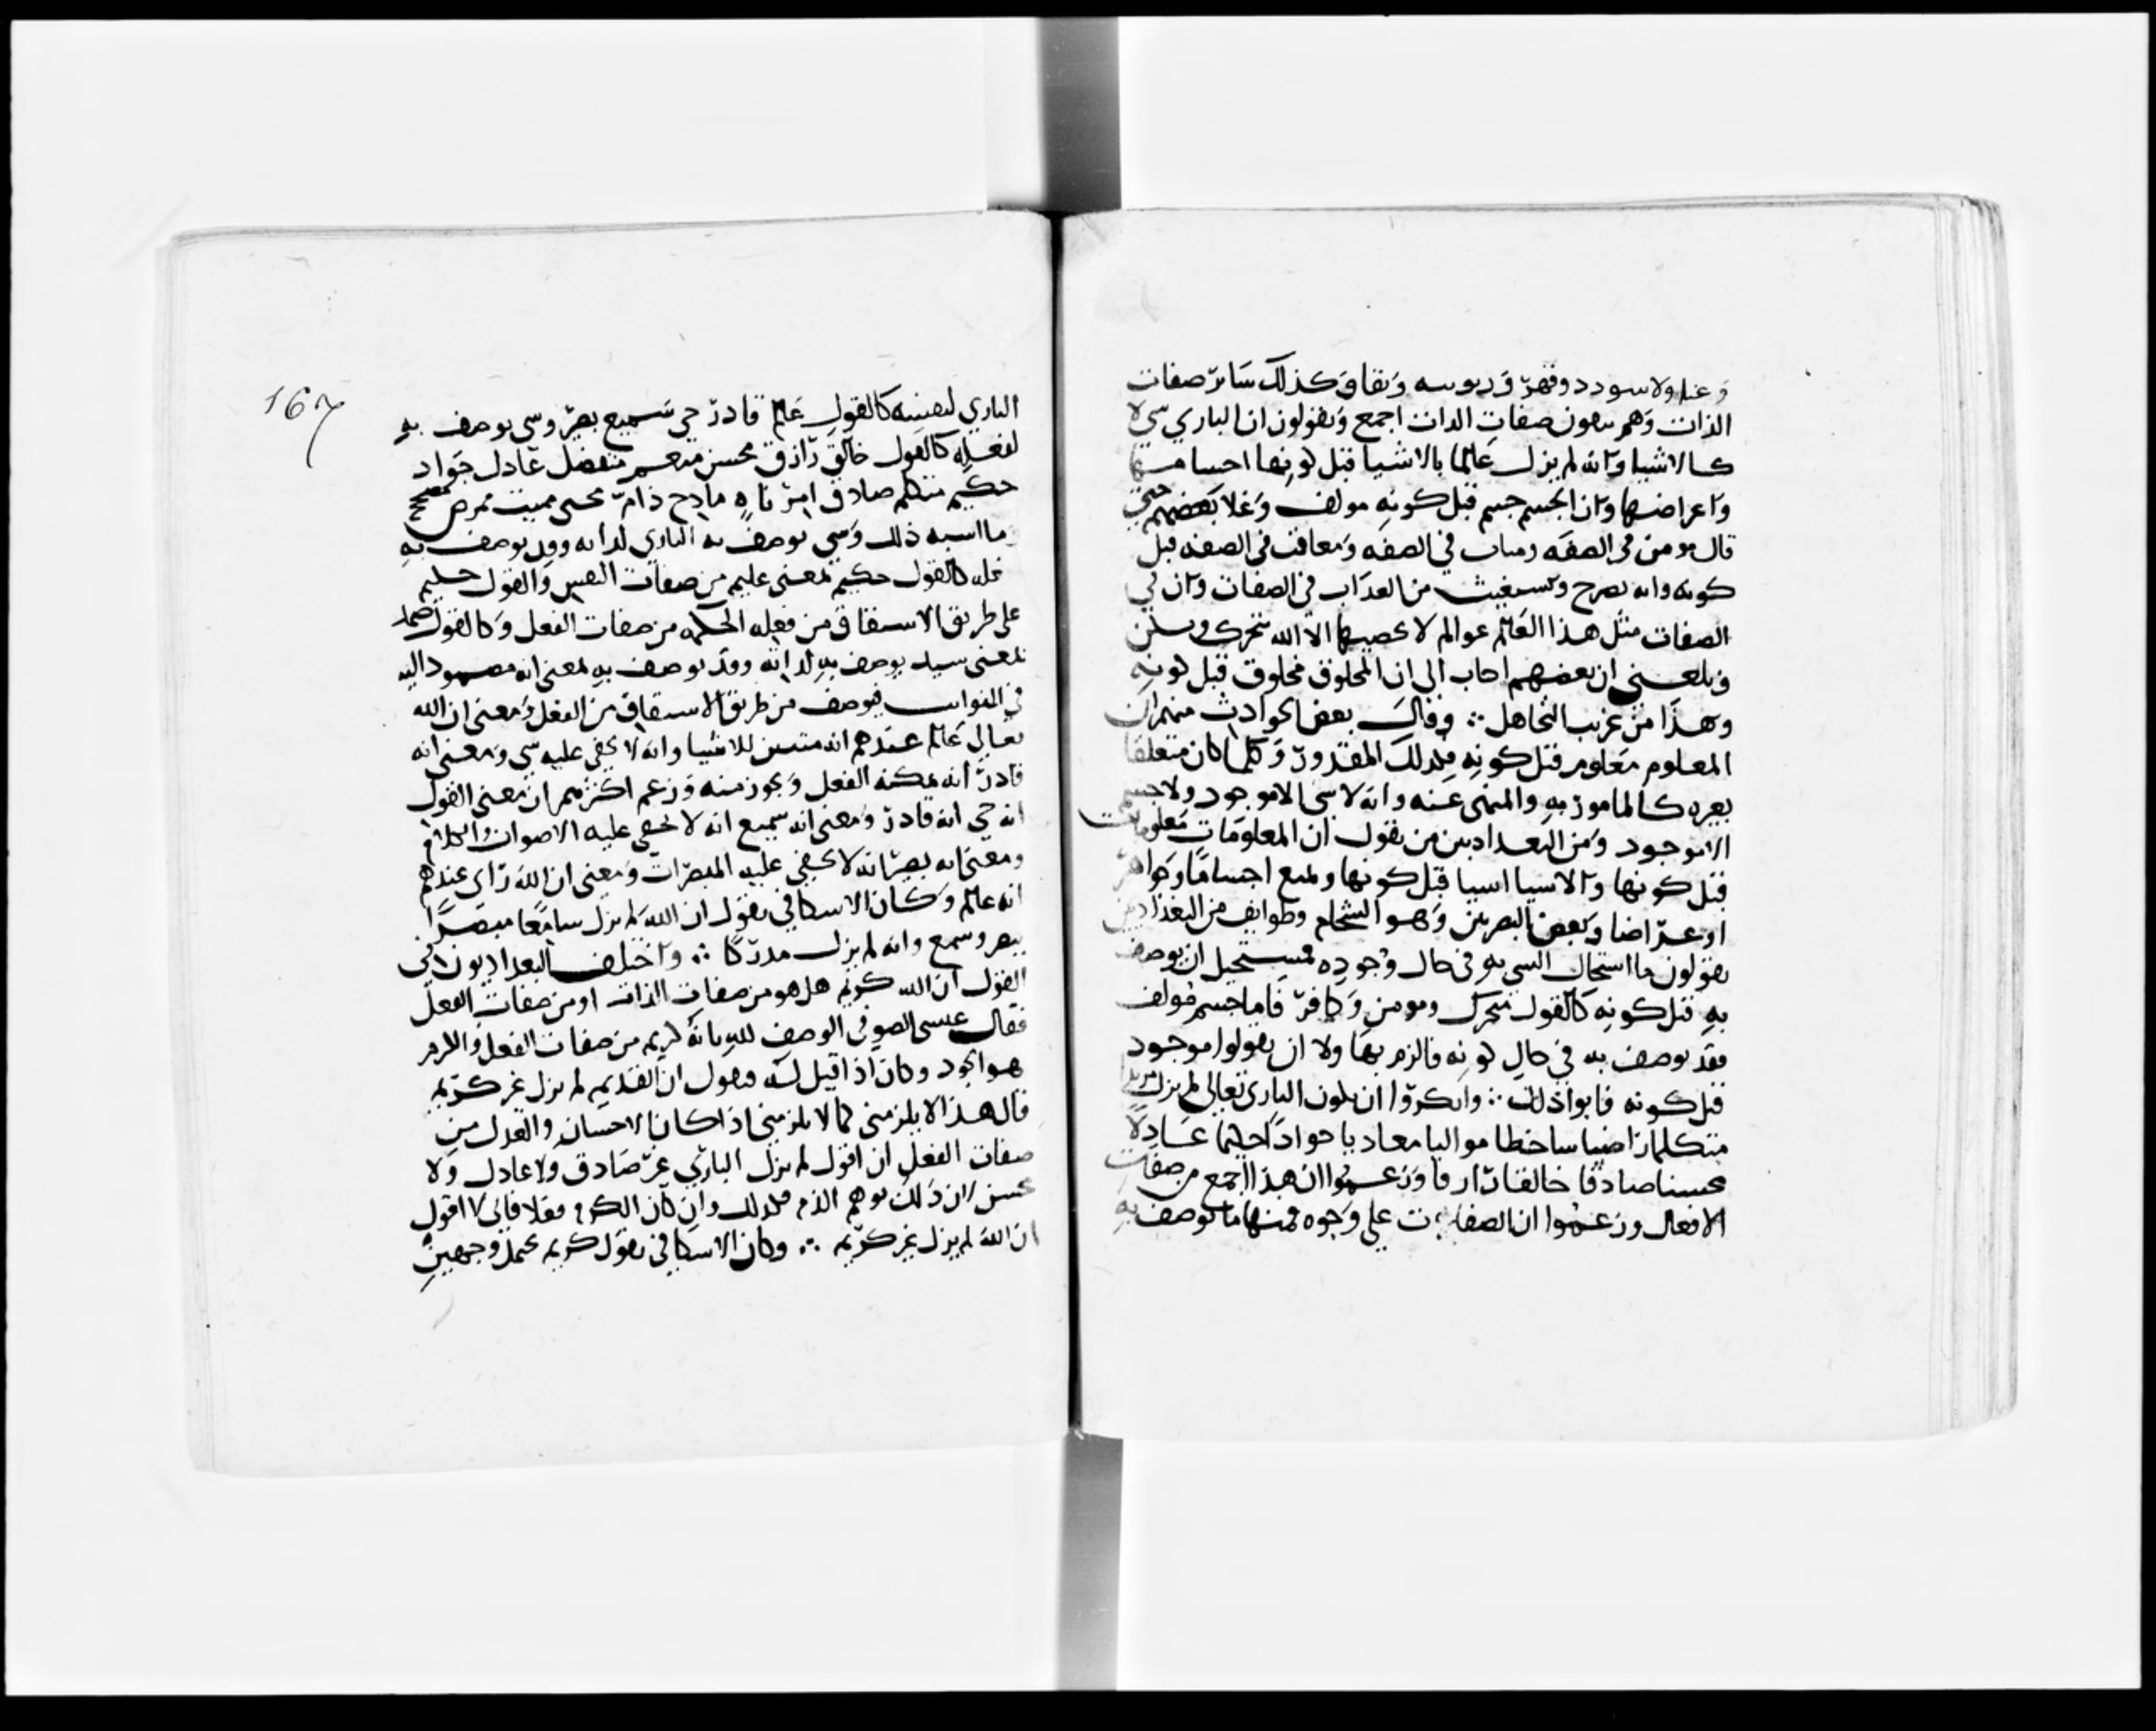 وغنا ولا سودد وقهر وربوبيه وبقا وكذلك سائر صفات
الذات وهم ينفون صفات الذات اجمع ويقولون ان الباري شي لا
كالاشيا وانه لم يزل عالما بالاشيا قبل كونها اجساما
واعراضها وان الجسم جسم قبل كونه مولف وغلا بعضهم حتى
قال مومن في الصفه ومثاب في الصفه ومعاقب في الصفه قبل
كونه وانه يصرخ ويستغيث من العذاب في الصفات وان في
الصفات مثل هذا العالم عوالم لا يحصيها الا الله تتحرك وتسكن
وبلغني ان بعضهم اجاب الى ان المخلوق مخلوق قبل كونه
وهذا من غريب التجاهل ∴ وقال بعض الحوادث منهم ان
المعلوم معلوم قبل كونه وكذلك المقدور وكلما كان متعلقا
بغيره كالمامور به والمنهى عنه وانه لا شى الا موجود ولا جسم
الا موجود ومن البغداديين من يقول ان المعلومات معلومات
قبل كونها والاشيا اشيا قبل كونها ويمنع اجساما وجواهر
او عراضا وبعض البصريين وهو الشحام وطوايف من البغداديين
يقولون ما استحال الشي به في حال وجوده فيستحيل ان يوصف
به قبل كونه كالقول متحرك ومومن وكافر فاما جسم مولف
فقد يوصف به في حال كونه فالزم بها ولا ان يقولوا موجود
قبل كونه فابوا ذلك ∴ وانكروا ان يكون الباري تعالى لم يزل مريدا
متكلما راضيا ساخطا مواليا معاديا جوادا حليما عادلا
محسنا صادقا خالقا رازقا وزعموا ان هذا اجمع من صفات
الافعال وزعموا ان الصفات على وجوه فمنها ما يوصف به
167
الباري لنفسه كالقول عالم قادر حي سميع بصير وشي يوصف به
لفعله كالقول خالق رازق محسن منعم متفضل عادل جواد
حكيم متكلم صادق امر ناه مادح ذام محيي مميت ممرض مصحح
وما اشبه ذلك وشي يوصف به الباري لذاته وقد يوصف به
لفعله كالقول حكيم بمعنى عليم من صفات النفس والقول حكيم
على طريق الاشتقاق من فعله الحكمه من صفات الفعل وكالقول صمد
بمعنى سيد يوصف به لذاته وقد يوصف به لمعنى انه مصمود اليه
في النوايب فيوصف من طريق الاشتقاق من الفعل ومعنى ان الله
تعالى عالم عندهم انه متبين للاشيا وانه لا يخفى عليه شي ومعنى انه
قادر انه يمكنه الفعل ويجوز منه وزعم اكثرهم ان معنى القول
انه حي انه قادر ومعنى انه سميع انه لا يخفي عليه الاصوات والكلام
ومعنى انه بصير انه لا يخفي عليه المبصرات ومعنى ان الله راى عندهم
انه عالم وكان الاسكافي يقول ان الله لم يزل سامعا مبصرا
يبصر وسمع وانه لم يزل مدركا ∴ واختلف البغداديون في
القول ان الله كريم هل هو من صفات الذات او من صفات الفعل
فقال عيسى الصوفي الوصف لله بانه كريم من صفات الفعل والكرم
هو الجود وكان اذا قيل له فيقول ان القديم لم يزل غير كريم
قال هذا لا يلزمني كما لا يلزمني اذا كان الاحسان والعدل من
صفات الفعل ان اقول لم يزل الباري غير صادق ولا عادل ولا
محسن لان ذلك يوهم الذم فكذلك وان كان الكرم فعلا فاني لا اقول
ان الله لم يزل غير كريم ∴ وكان الاسكافي يقول كريم يحتمل وجهين